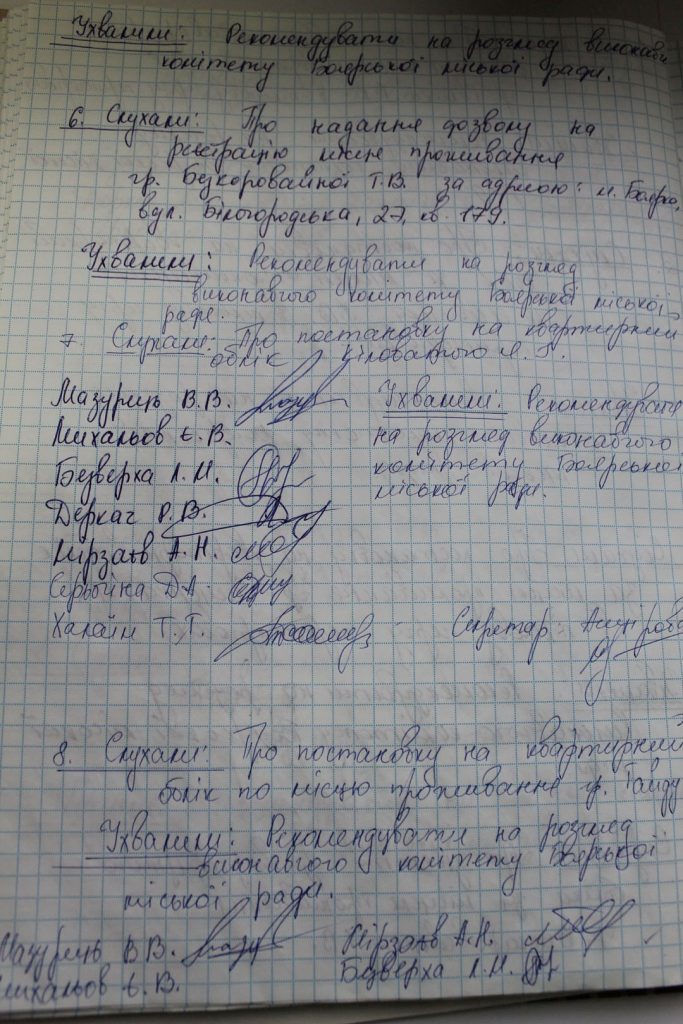 Ухвалили: Рекомендувати на розгляд виконавч
комітету Боярської міської ради.
6. Слухали: Про надання дозволу на
реєстрацію місця проживання
гр. Безкоровайної Т.В. за адресою: м. Боярка,
вул. Білогородська, 27, кв. 179.
Ухвалили: Рекомендувати на розгляд
виконавчого комітету Боярської міської
ради.
7. Слухали: Про постановку на квартирний
облік Л. Г.
Мазурець В.В.
Михальов Є.В.
Безверха Л.М.
Деркач Р.В.
Мірзаєв А.Н.
Д.А.
Халаїм Т.Г.
Ухвалили: Рекомендувати
на розгляд виконавчого
комітету Боярської
міської ради.
Секретар:
8. Слухали: Про постановку на квартирний
облік по місцю проживання гр. Гайду
Ухвалили: Рекомендувати на розгляд
виконавчого комітету Боярської
міської ради.
Мазурець В.В.
Михальов Є.В.
Мірзаєв А.Н.
Безверха Л.М.